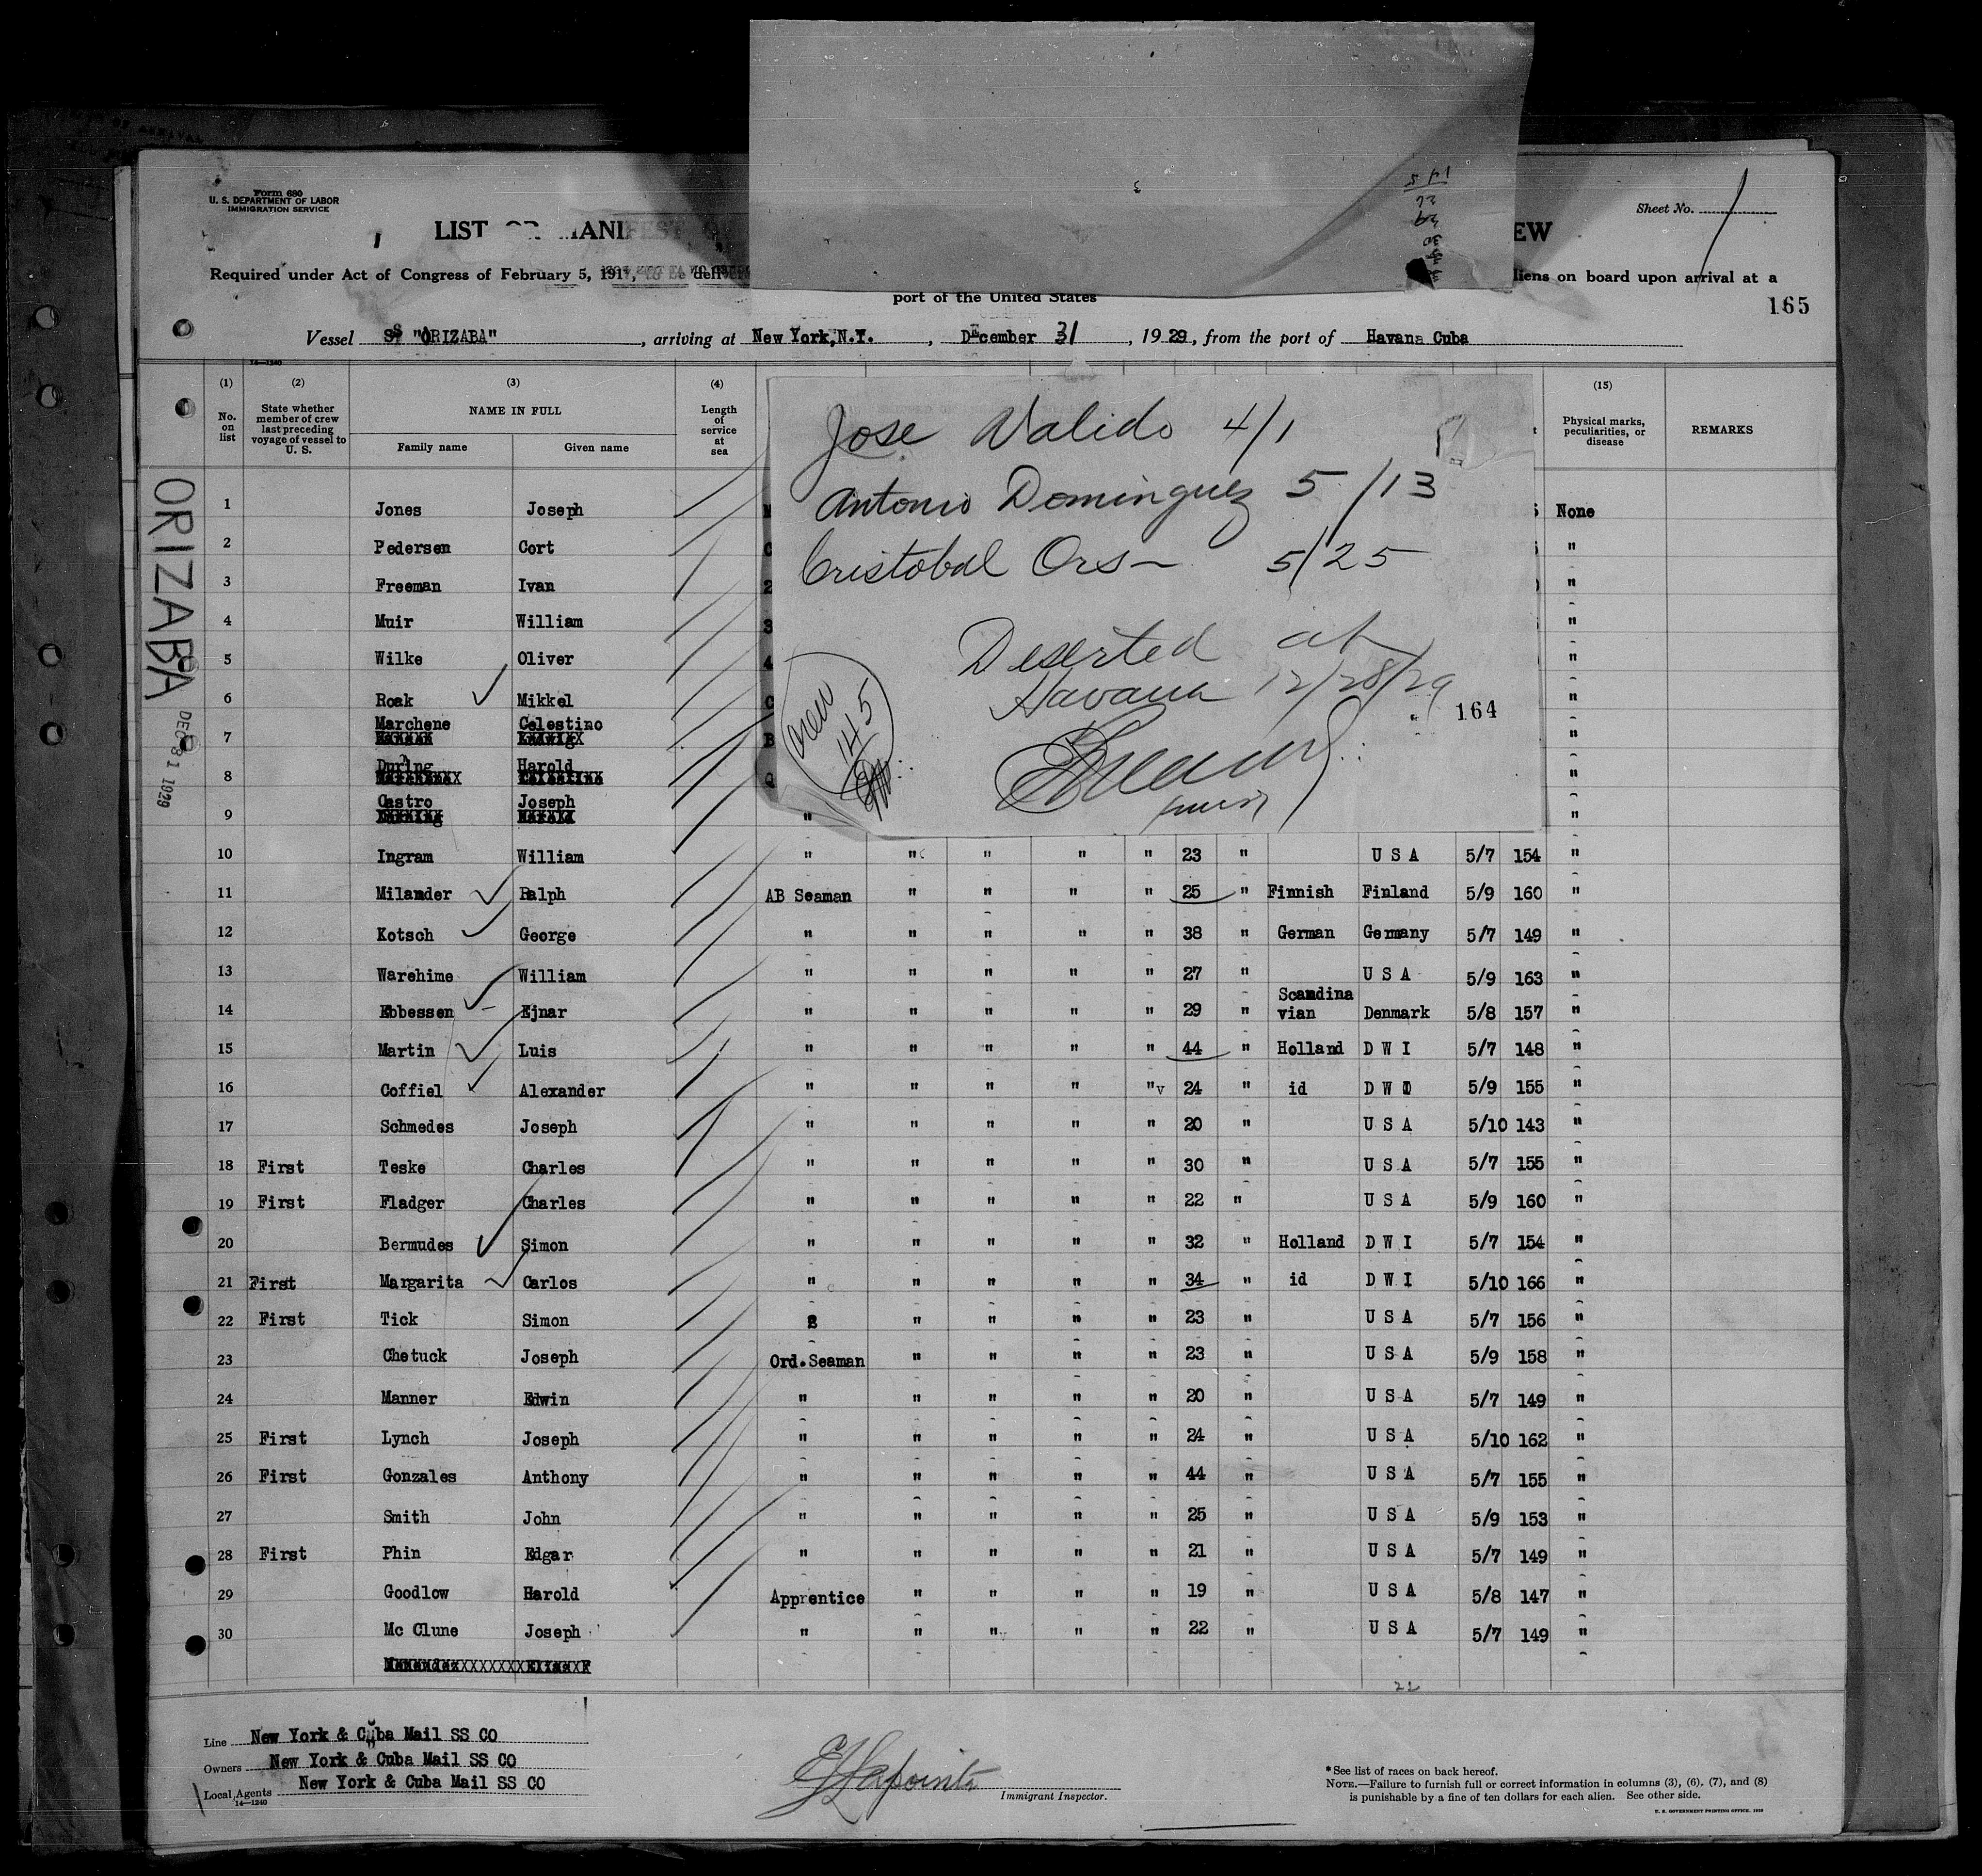 Form 680
U. S. DEPARTMENT OF LABOR
IMMIGRATION SERVICE
Sheet No. 1
LIST EW
Required under Act of Congress of February 5, 1917, to be deliver liens on board upon arrival at a
port of the United States
165
Vessel SS "ORIZABA", arriving at New York, N.Y., December 31, 1929, from the port of Havana Cuba
14—1240
(1) (2) (3) (4) (15)
No. on list State whether member of crew last preceding voyage of vessel to U. S. NAME IN FULL Length of service at sea Physical marks, peculiarities, or disease REMARKS
Family name Given name
Jose Valido 4/1
Antonio Dominguez 5/13
Cristobal Ors — 5/25
Deserted at
Havana 12/28/29
164
crew
145
ORIZABA
DEC 31 1929
1 Jones Joseph None
2 Pedersen Cort "
3 Freeman Ivan "
4 Muir William "
5 Wilke Oliver "
6 Roak Mikkel "
7 Marchene Celestino "
8 During Harold "
9 Castro Joseph " "
10 Ingram William " " " " " 23 " U S A 5/7 154 "
11 Milander Ralph AB Seaman " " " " 25 " Finnish Finland 5/9 160 "
12 Kotsch George " " " " " 38 " German Germany 5/7 149 "
13 Warehime William " " " " " 27 " U S A 5/9 163 "
14 Ebbessen Ejnar " " " " " 29 " Scandina vian Denmark 5/8 157 "
15 Martin Luis " " " " " 44 " Holland D W I 5/7 148 "
16 Coffiel Alexander " " " " " 24 " id D W I 5/9 155 "
17 Schmedes Joseph " " " " " 20 " U S A 5/10 143 "
18 First Teske Charles " " " " " 30 " U S A 5/7 155 "
19 First Fladger Charles " " " " " 22 " U S A 5/9 160 "
20 Bermudes Simon " " " " " 32 " Holland D W I 5/7 154 "
21 First Margarita Carlos " " " " " 34 " id D W I 5/10 166 "
22 First Tick Simon " " " " 23 " U S A 5/7 156 "
23 Chetuck Joseph Ord.Seaman " " " " 23 " U S A 5/9 158 "
24 Manner Edwin " " " " " 20 " U S A 5/7 149 "
25 First Lynch Joseph " " " " " 24 " U S A 5/10 162 "
26 First Gonzales Anthony " " " " " 44 " U S A 5/7 155 "
27 Smith John " " " " " 25 " U S A 5/9 153 "
28 First Phin Edgar " " " " " 21 " U S A 5/7 149 "
29 Goodlow Harold Apprentice " " " " 19 " U S A 5/8 147 "
30 Mc Clune Joseph " " " " " 22 " U S A 5/7 149 "
22
Line New York & Cuba Mail SS CO
Owners New York & Cuba Mail SS CO
Local Agents New York & Cuba Mail SS CO
14—1240
E J Lapointe
Immigrant Inspector.
*See list of races on back hereof.
NOTE.—Failure to furnish full or correct information in columns (3), (6), (7), and (8)
is punishable by a fine of ten dollars for each alien. See other side.
U. S. GOVERNMENT PRINTING OFFICE. 1928